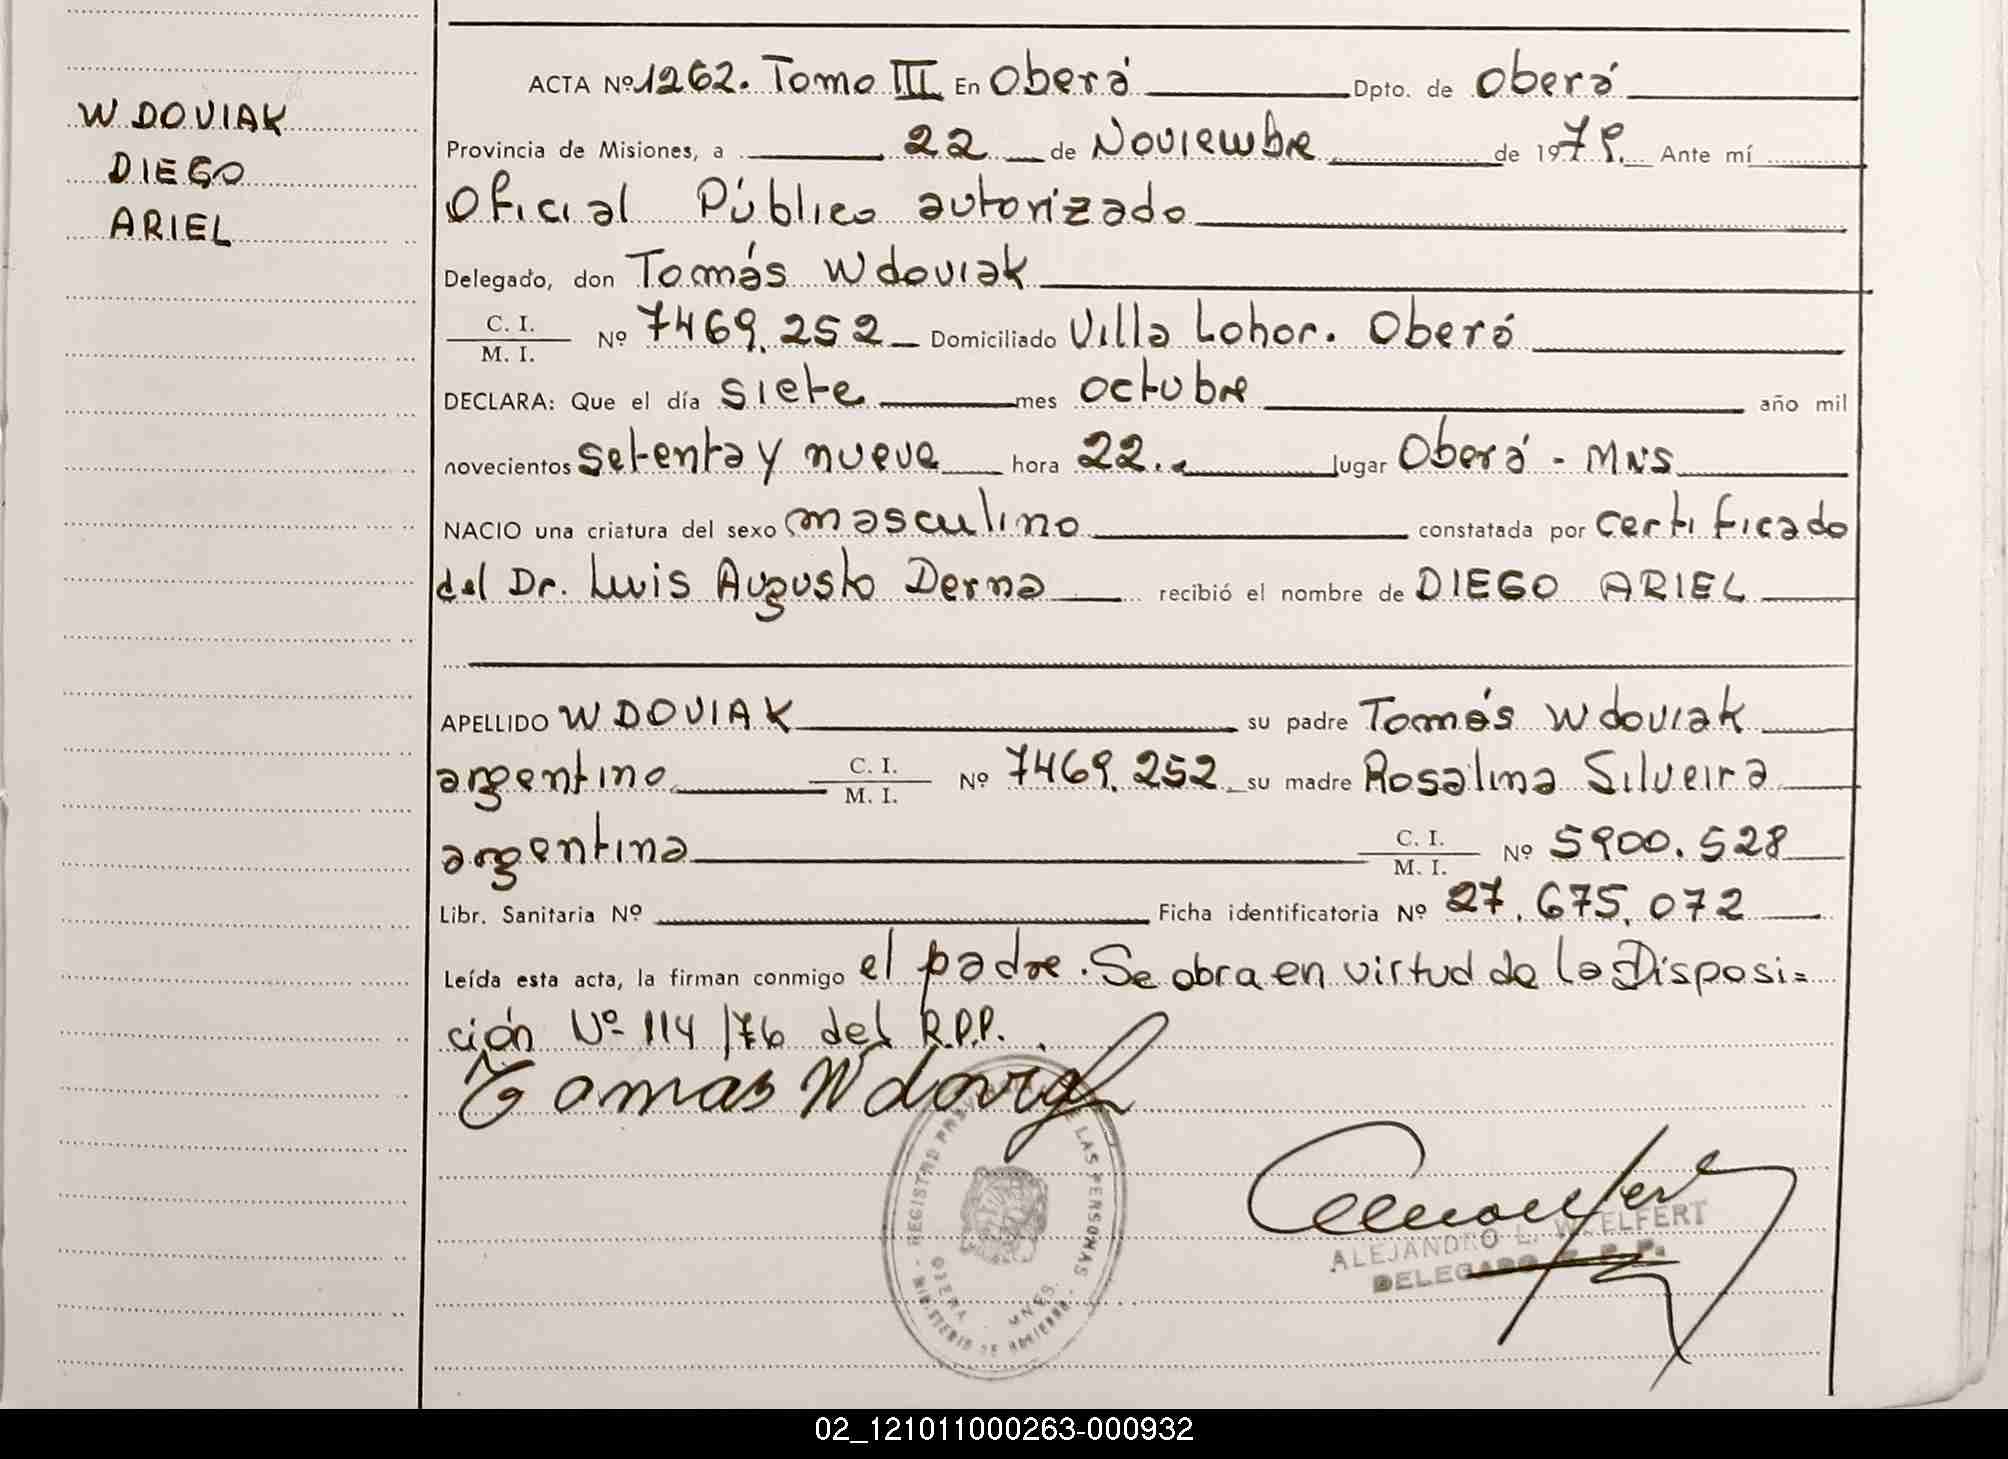 W DOVIAK
DIEGO
ARIEL
ACTA Nº 1262. Tomo III En Oberá Dpto. de Oberá
Provincia de Misiones, a 22 de Noviembre de 1979. Ante mí
Oficial Público autorizado
Delegado, don Tomás Wdoviak
C. I.
M. I. Nº 7469.252 Domiciliado Villa Lohor. Oberá
DECLARA: Que el día siete mes octubre año mil
novecientos setenta y nueve hora 22. lugar Oberá - MNS
NACIO una criatura del sexo masculino constatada por certificado
del Dr. Luis Augusto Derna recibió el nombre de DIEGO ARIEL
APELLIDO W DOVIAK su padre Tomás Wdoviak
argentino C. I. M. I. Nº 7469.252 su madre Rosalina Silveira
argentina C. I. M. I. Nº 5900.528
Libr. Sanitaria Nº Ficha identificatoria Nº 27.675.072
Leída esta acta, la firman conmigo el padre. Se obra en virtud de la Disposi=
ción Nº 114/76 del R.P.P.
Tomas Wdoviak
REGISTRO PROVINCIAL DE LAS PERSONAS
OBERA MNES.
MINISTERIO DE GOBIERNO
ALEJANDRO L. WELFERT
DELEGADO R. P. P.
02_121011000263-000932